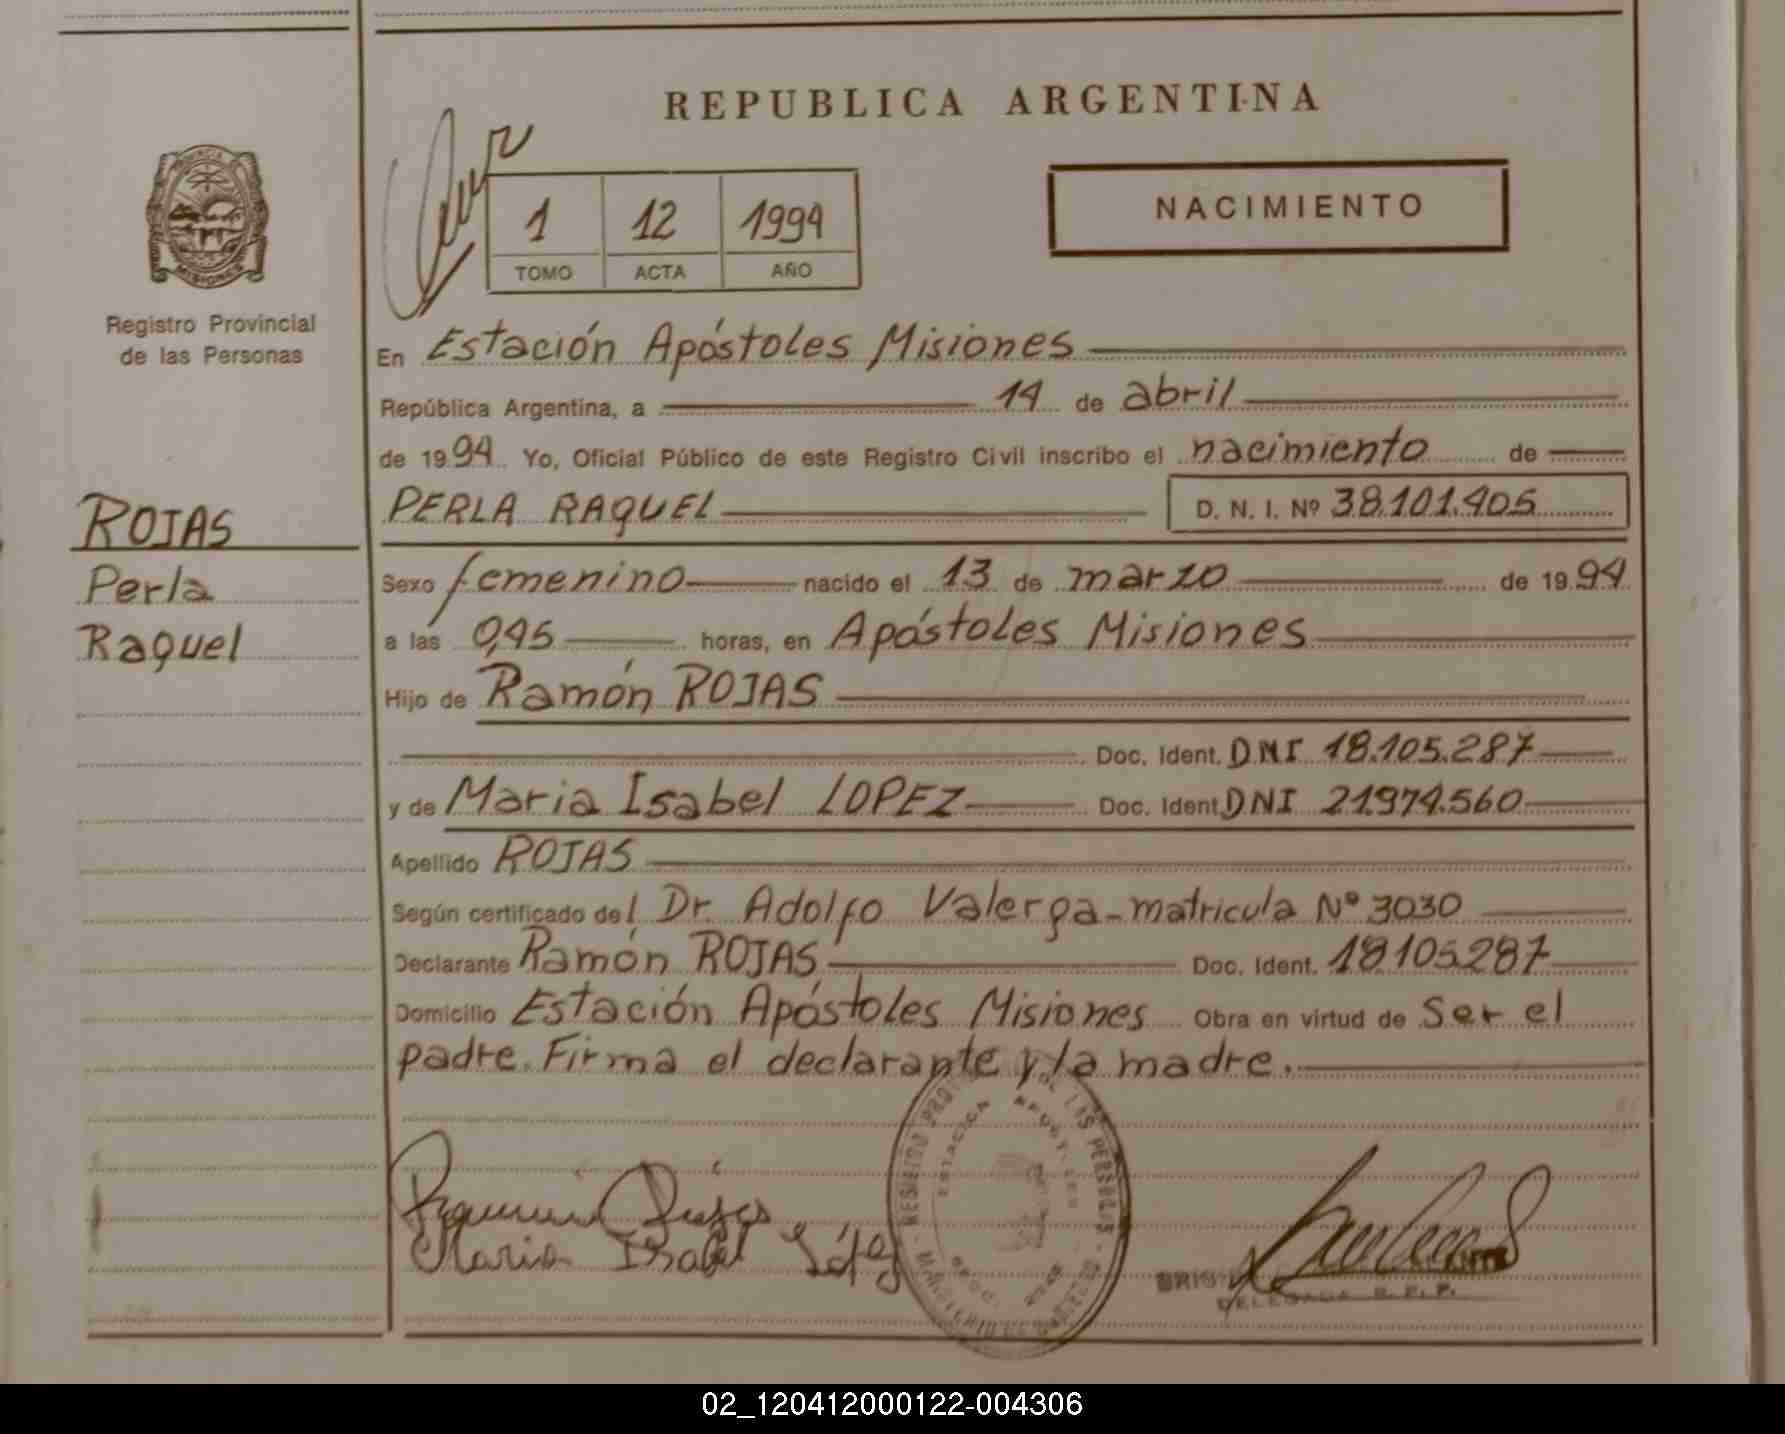 REPUBLICA ARGENTINA
1 12 1994
TOMO ACTA AÑO
NACIMIENTO
MISIONES
Registro Provincial
de las Personas
ROJAS
Perla
Raquel
En Estación Apóstoles Misiones
República Argentina, a 14 de abril
de 1994 Yo, Oficial Público de este Registro Civil inscribo el nacimiento de
PERLA RAQUEL D. N. I. Nº 38.101.405
Sexo femenino nacido el 13 de marzo de 1994
a las 0,45 horas, en Apóstoles Misiones
Hijo de Ramón ROJAS
Doc. Ident. DNI 18.105.287
y de Maria Isabel LOPEZ Doc. Ident DNI 21.974.560
Apellido ROJAS
Según certificado del Dr. Adolfo Valerga - matricula Nº 3030
Declarante Ramón ROJAS Doc. Ident. 18.105.287
Domicilio Estación Apóstoles Misiones Obra en virtud de Ser el
padre. Firma el declarante y la madre.
Maria Isabel López
DELEGADA R. P. P.
02_120412000122-004306